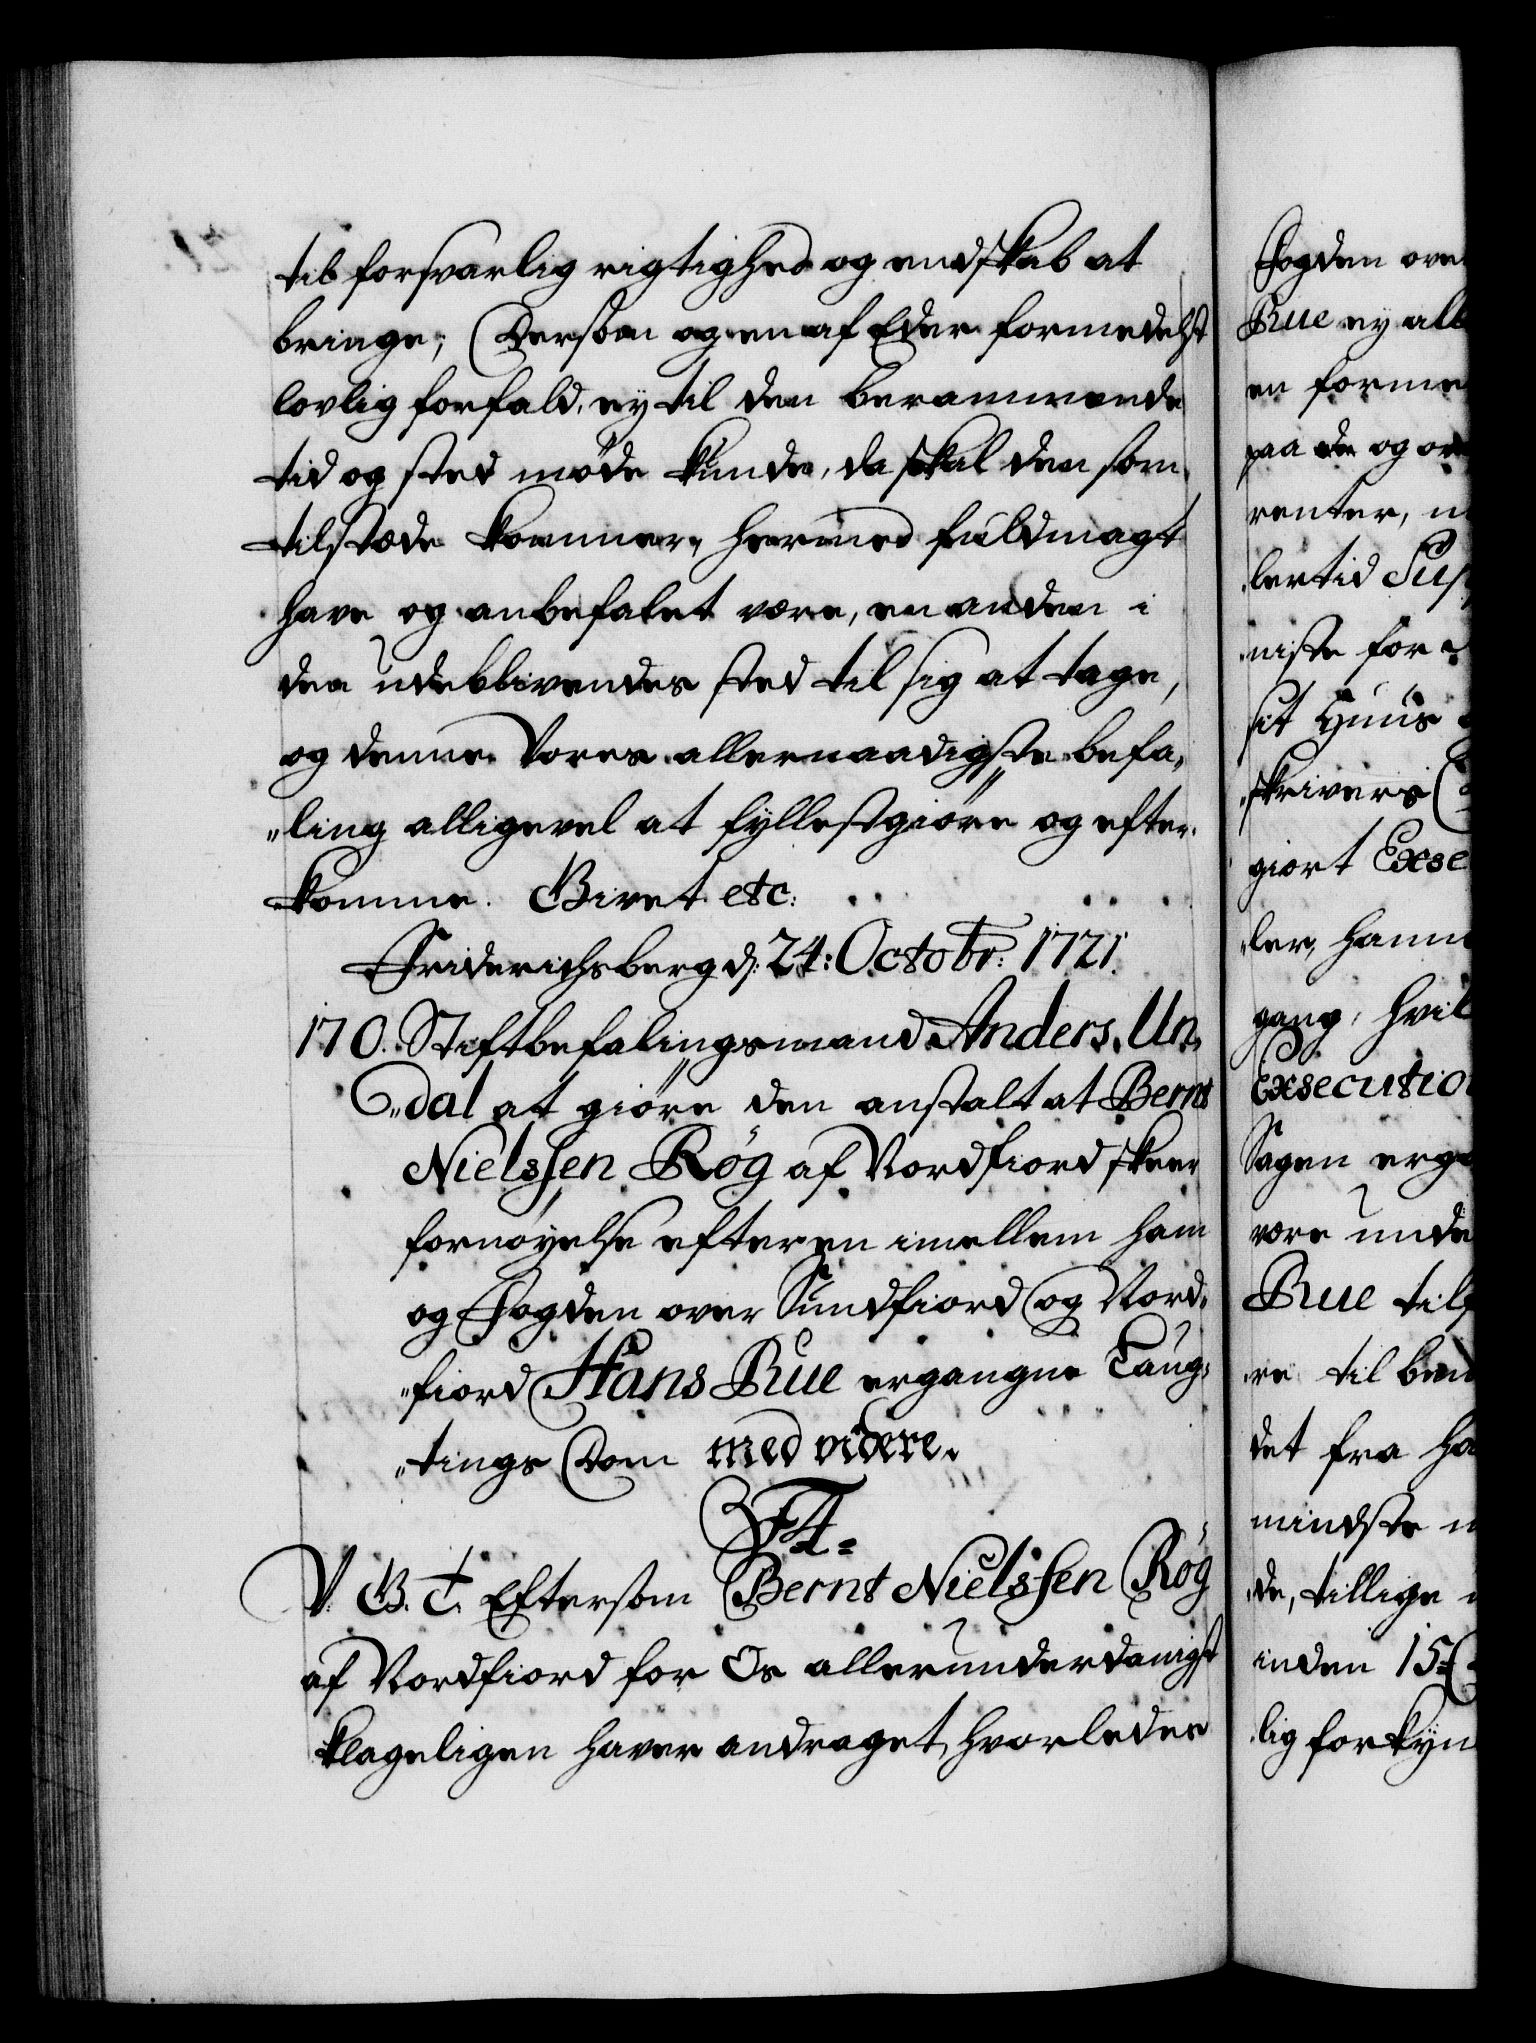 til forsvarlig rigtighed og endskab at
bringe; Dersom og en af Eder formedelst
lovlig forfald, ey til den berammende
tid og sted møde kunde, da skal den som
tilstæde kommer, hermed fuldmagt
have og anbefalet være, en anden i
den udeblivendes sted til sig at tage,
og denne Vores allernaadigste befa„
„ling alligevel at fyllestgiøre og efter„
komme. Givet etc:
Friderichsberg d: 24: Octobr: 1721.
170. Stiftbefalingsmand Anders Un„
„dal at giøre den anstalt at Bernt
Nielssen Røg af Nordfiord skeer
fornøyelse efter en imellem ham
og Fogden over Sundfiord og Nord„
„fiord Hans Rue ergangne Laug„
„tings Dom med videre.
F4=
V. G. T. Eftersom Bernt Nielssen Røg
af Nordfiord for Os allerunderdanigst
klageligen haver andraget, hvorledes
Fogden ove
Rue ey all
en forme
paa den og
renter, n
lertid Sup
niste for
sit Huus
skrivers
giort Exse
ler, hann
gang, hvil
Exsecutio
Sagen erga
være unde
Rue til
re til
det fra ha
mindste
de, tillige
inden 15
lig forkyn